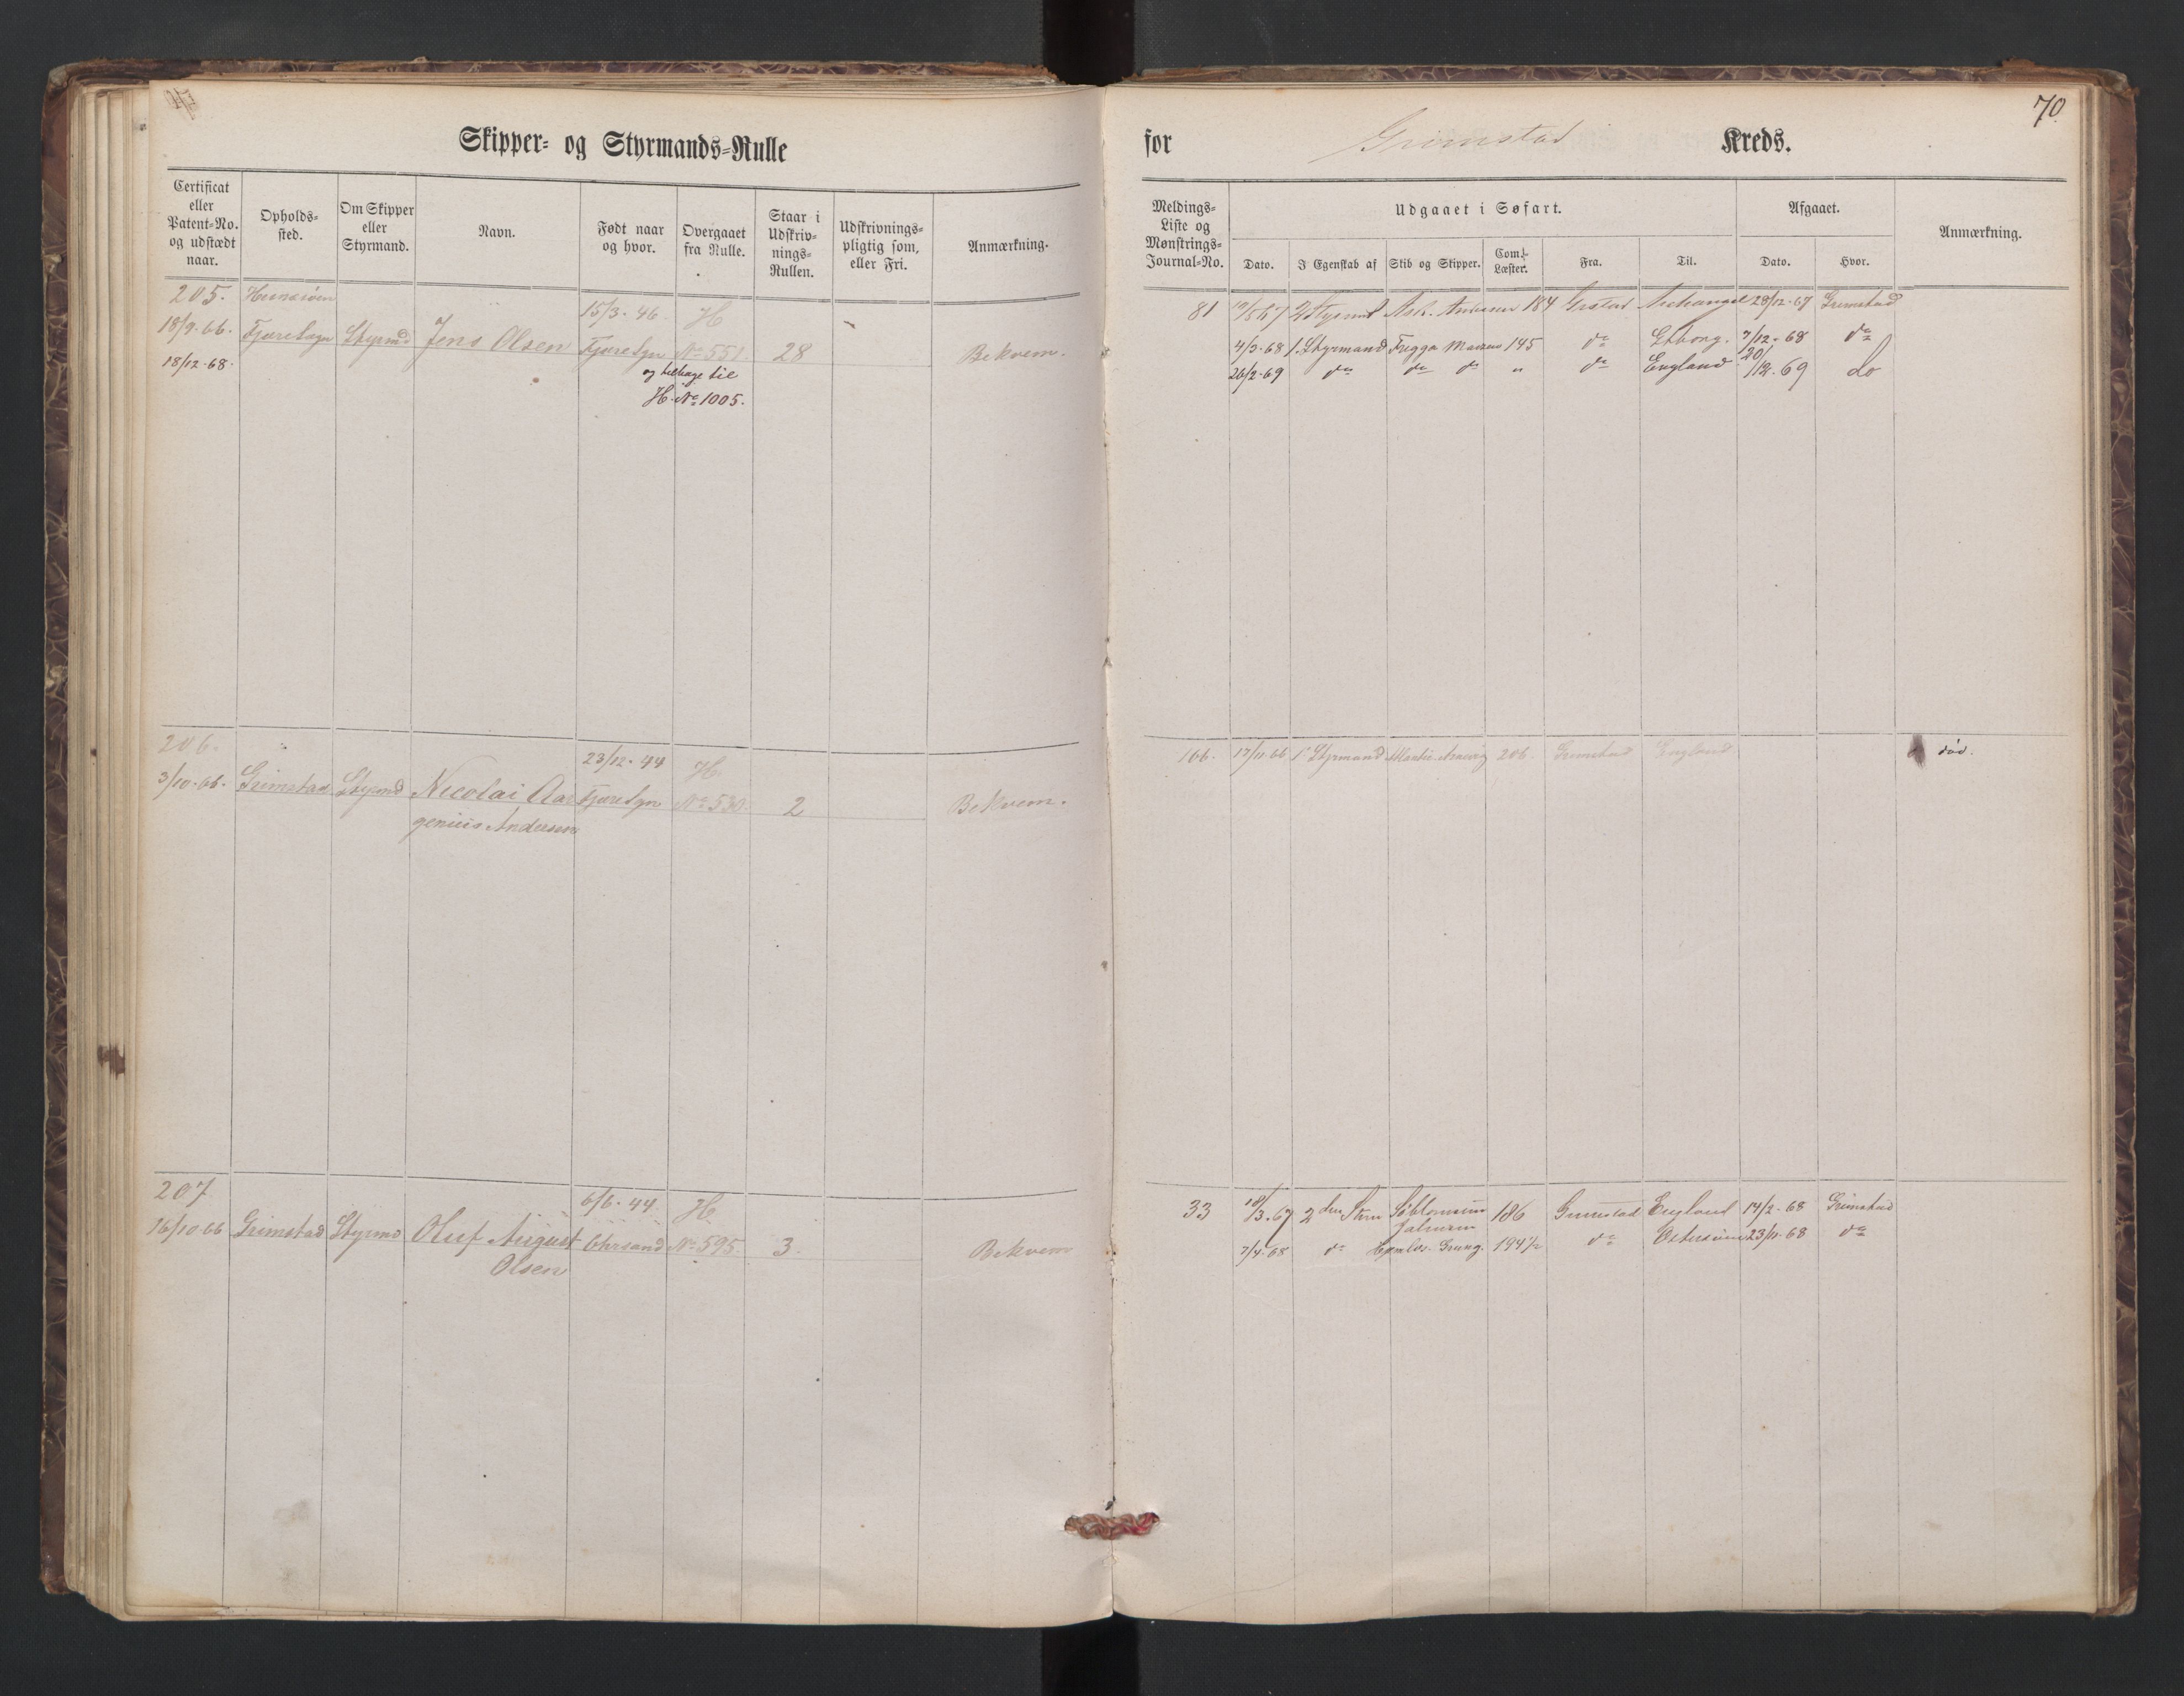 70.
Skipper- og Styrmands-Rulle for Grimstad Kreds.
Certificat eller Patent-No. og udstædt naar.
Opholds-sted.
Om Skipper eller Styrmand.
Navn.
Født naar og hvor.
Overgaaet fra Rulle.
Staar i Udskriv-nings-Rullen.
Udskrivnings-pligtig som, eller Fri.
Anmærkning.
Meldings-Liste og Mønstrings-Journal-No.
Udgaaet i Søfart.
Dato.
I Egenskab af
Skib og Skipper.
Com.-Læster.
Fra.
Til.
Afgaaet.
Dato.
Hvor.
Anmærkning.
205.
18/9-66. Fjæresogn Styrmd Jens Olsen 15/3-46 Fjæresgn H No 551. 28 Bekvem.
18/12-68.
og tilbage til
H. No 1005.
81 2 Styrmd 184 Archangel 28/12-67 Grimstad
4/3-68 1. Styrmand Frigga 145 do 7/12-68 do
26/2-69 do do do " do England 20/12-69 do
206.
3/10-66. Grimstad Styrmd Nicolai Aa 23/12-44 Fjæresgn H. No 530. 2 Bekvem.
genius Andersen
166. 17/11 66 1 Styrmand 206. Grimstad England død.
207
16/10 66 Grimstad Styrmd Oluf August 6/6-44 Chrsand H. No 595. 3. Bekvem
Olsen
33 18/3-67 2den 186 Grimstad England 14/2-68 Grimstad
7/4-68 do 194 1/2 do 23/11-68 do